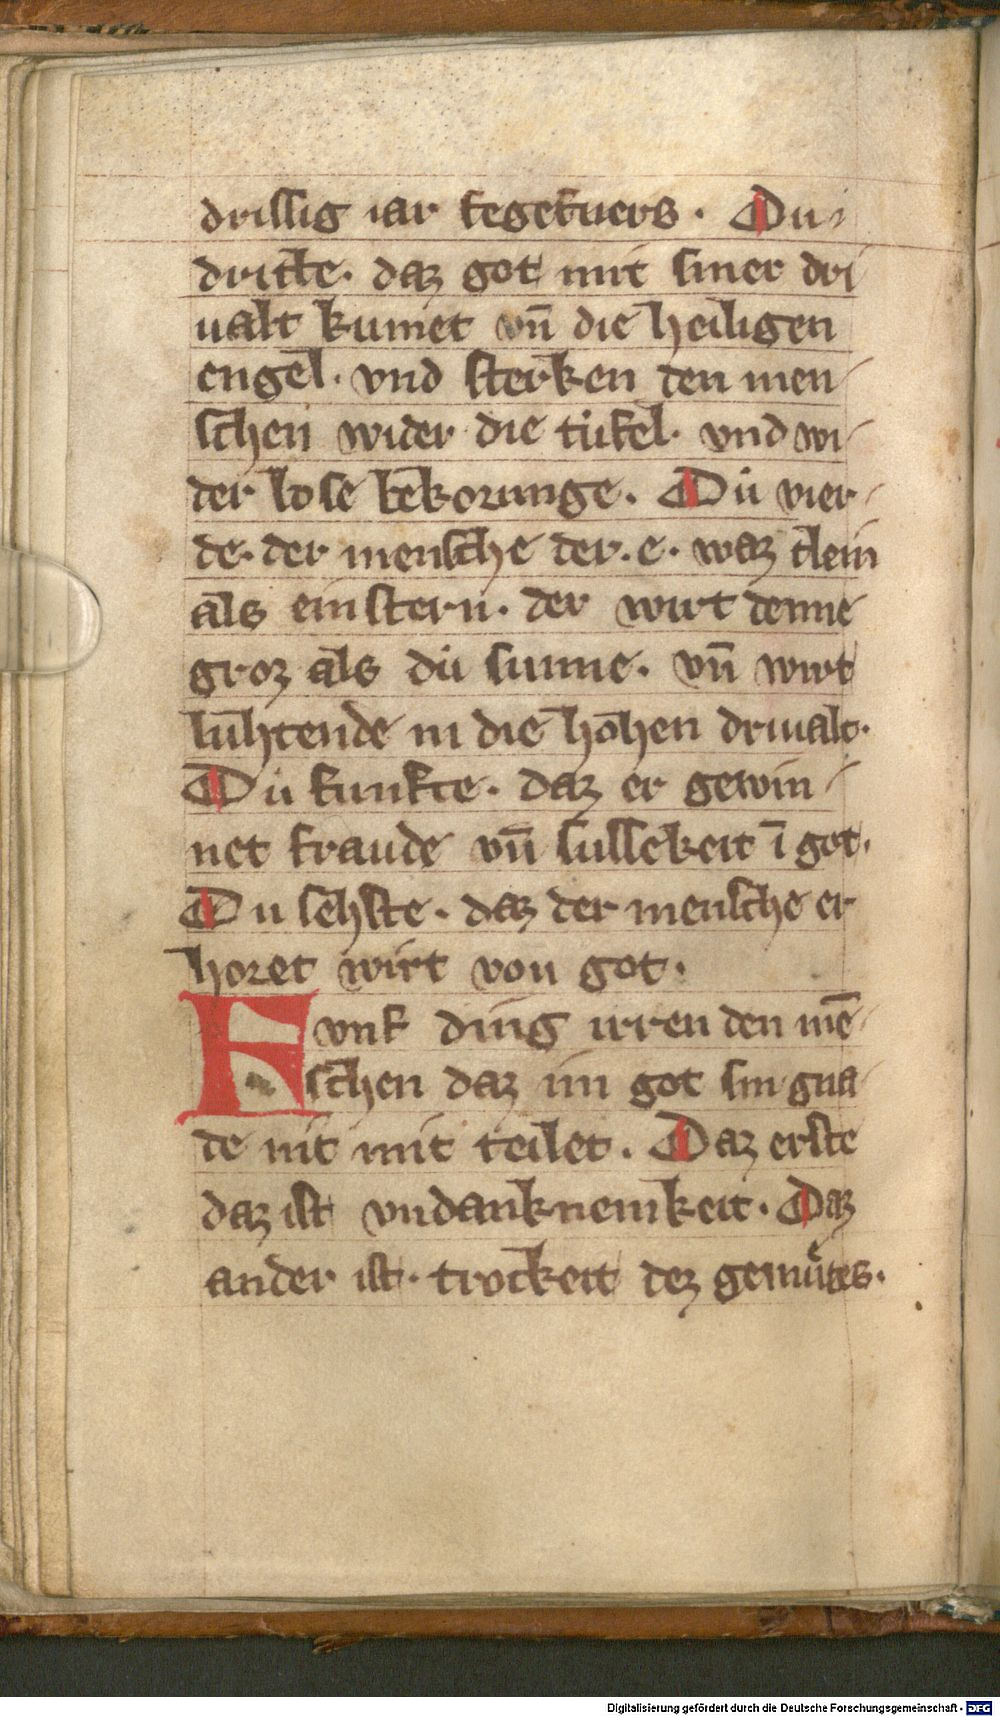 drissig iar fegefuers. Du
dritte. daz got mit siner dri
ualt kumet vn̄ die heiligen
engel. vnd sterken den men
schen wider die tüfel. vnd wi
der böse bekorunge. Dü vier
de. der mensche der. e. waz klein
als ein stern. der wirt denne
groz als dü sunne. vn̄ wirt
lühtende in die hohen driualt.
Dü funfte. daz er gewin
net fraude vn̄ sussekeit ī got.
Du sehste. daz der mensche er
horet wirt von got.
Fvnf ding irren den mē
schen daz im got sin gna
de nit mit teilet. Daz erste
daz ist vndanknemkeit. Daz
ander ist. trockeit dez gemuͤtes.
Digitalisierung gefördert durch die Deutsche Forschungsgemeinschaft - DFG